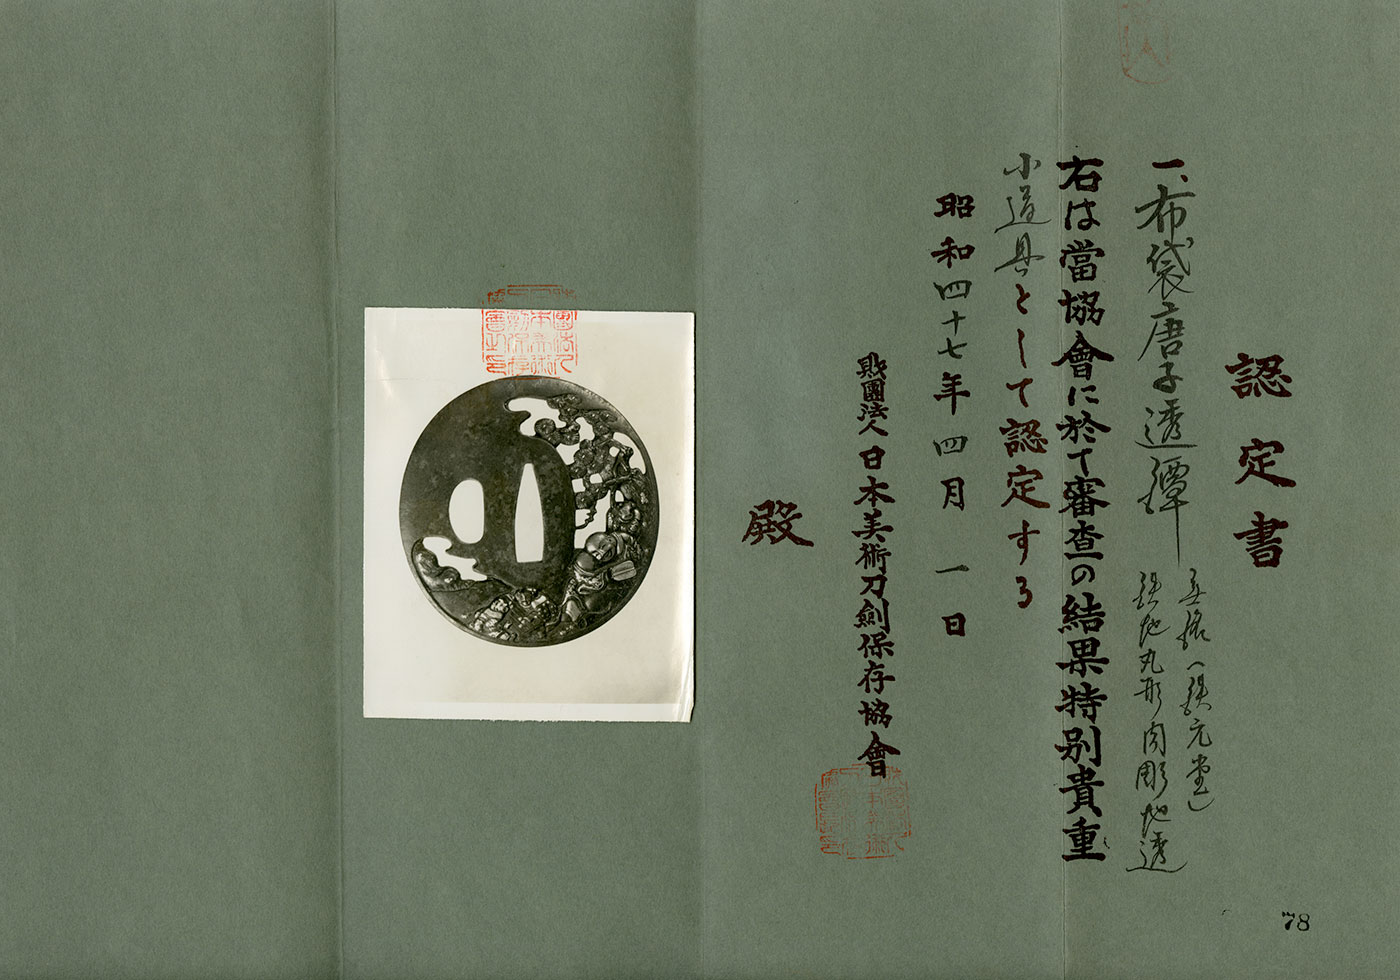 認定書
一、布袋唐子透鐔
無銘(鉄元堂)
鉄地丸形肉彫地透
右は當協會に於て審査の結果特別貴重
小道具として認定する
昭和四十七年四月一日
財團法人日本美術刀劍保存協會
殿
78